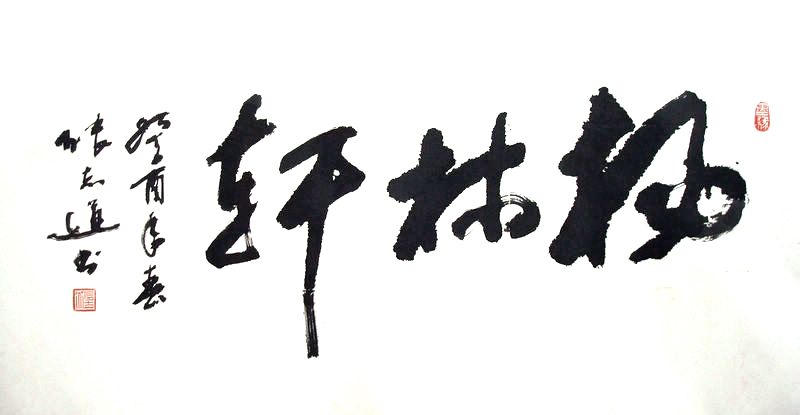 杨林轩
癸酉年春
张志進书